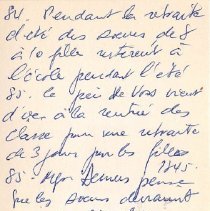 84. Pendant la retraite
d'été des soeurs de 8
à 10 filles restèrent à
l'école pendant l'été
85. le père de Vos vient
à la rentrée des
classes pour une retraite
de 3 jours pour les filles
1845.
85. Mgr pense
que les soeurs devraient